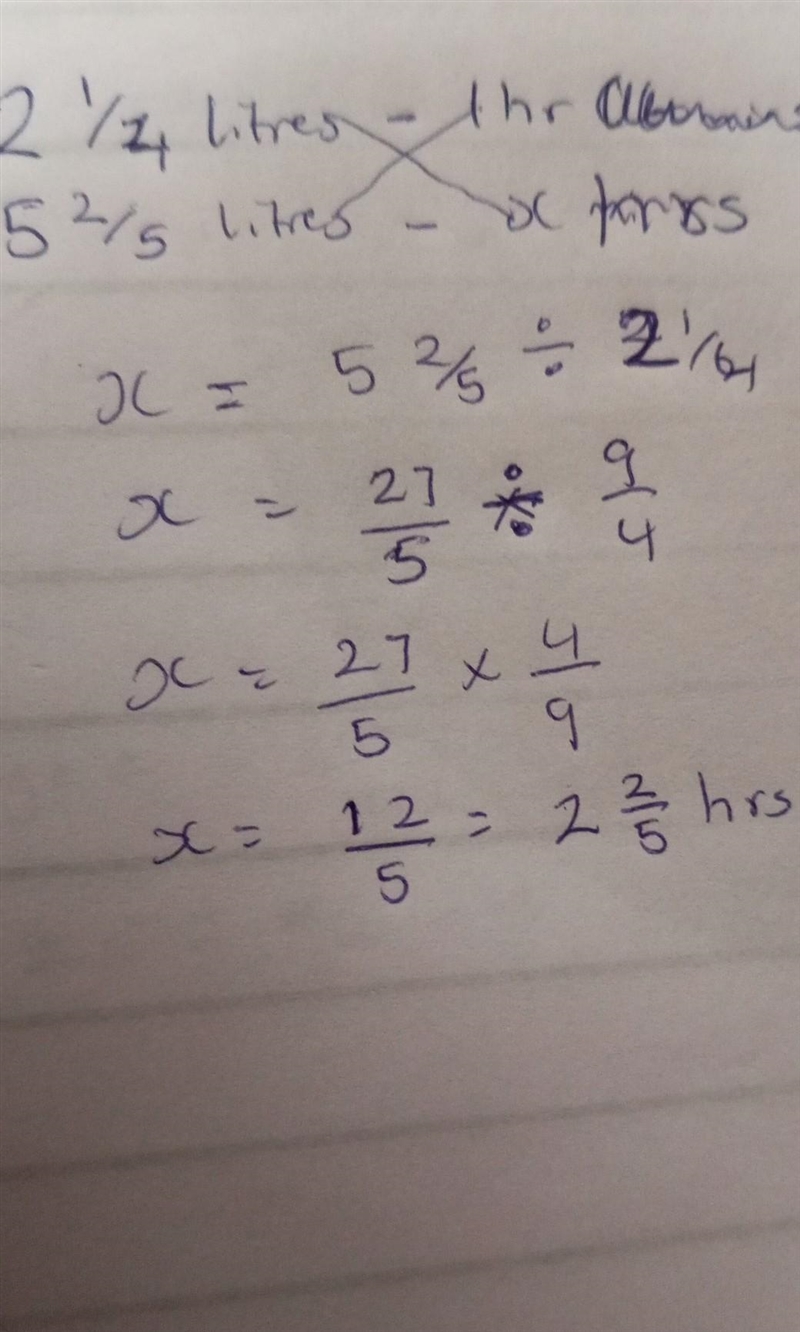 2 1/4 litres - 1hr
5 2/5 litres - x hrs
x = 5 2/5 ÷ 2 1/4
x = 27/5 ÷ 9/4
x = 27/5 × 4/9
x = 12/5 = 2 2/5 hrs